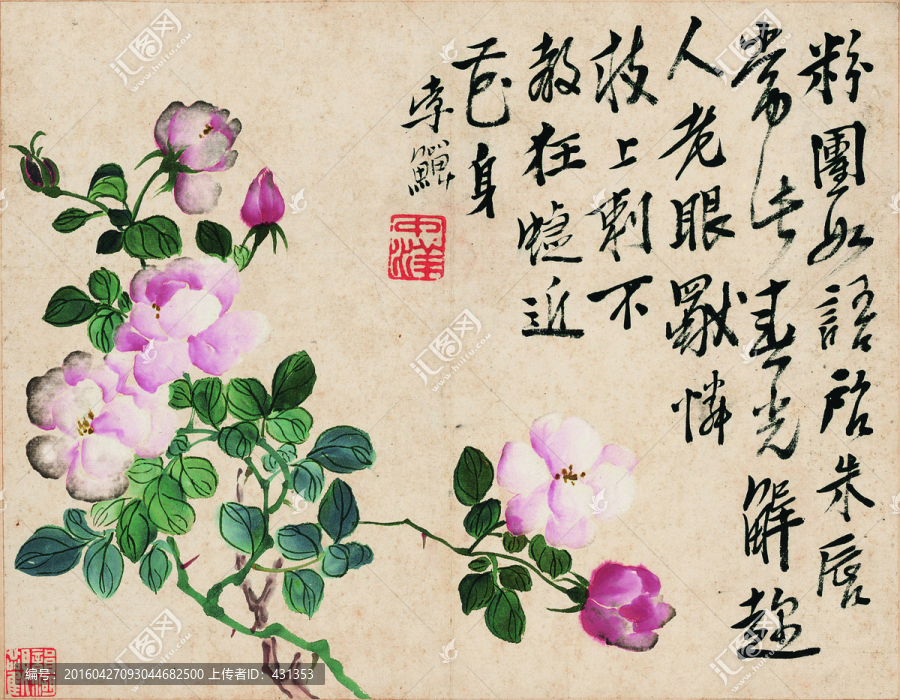 粉團如語启朱唇
常占春光解趂
人老眼憐
枝上刺不
教狂近
花身
李鱓
中洋
汇图网
编号：20160427093044682500 上传者ID：431353